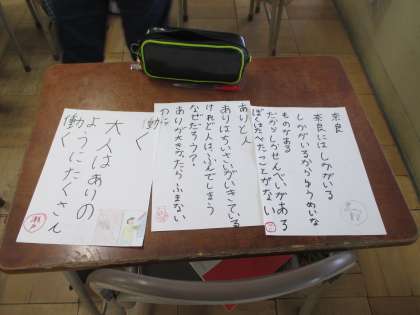 奈良
奈良にはしかがいる
しかがいるからゆうめいな
ものがある
だからしかせんべいがある
ぼくはたべたことがない
ありと人
ありはちいさいがいきている
けれど人は、ふんでしまう
なぜだろう?
ありが大きかったらふまない
のに
働く
大人はありの
ようにたくさん
働く